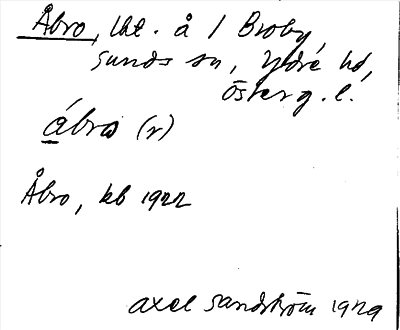 Åbro, lht. å / Broby,
Sunds sn, Ydre hd,
Österg. l.
ábro (r)
Åbro, kb 1922
Axel Sandström 1929